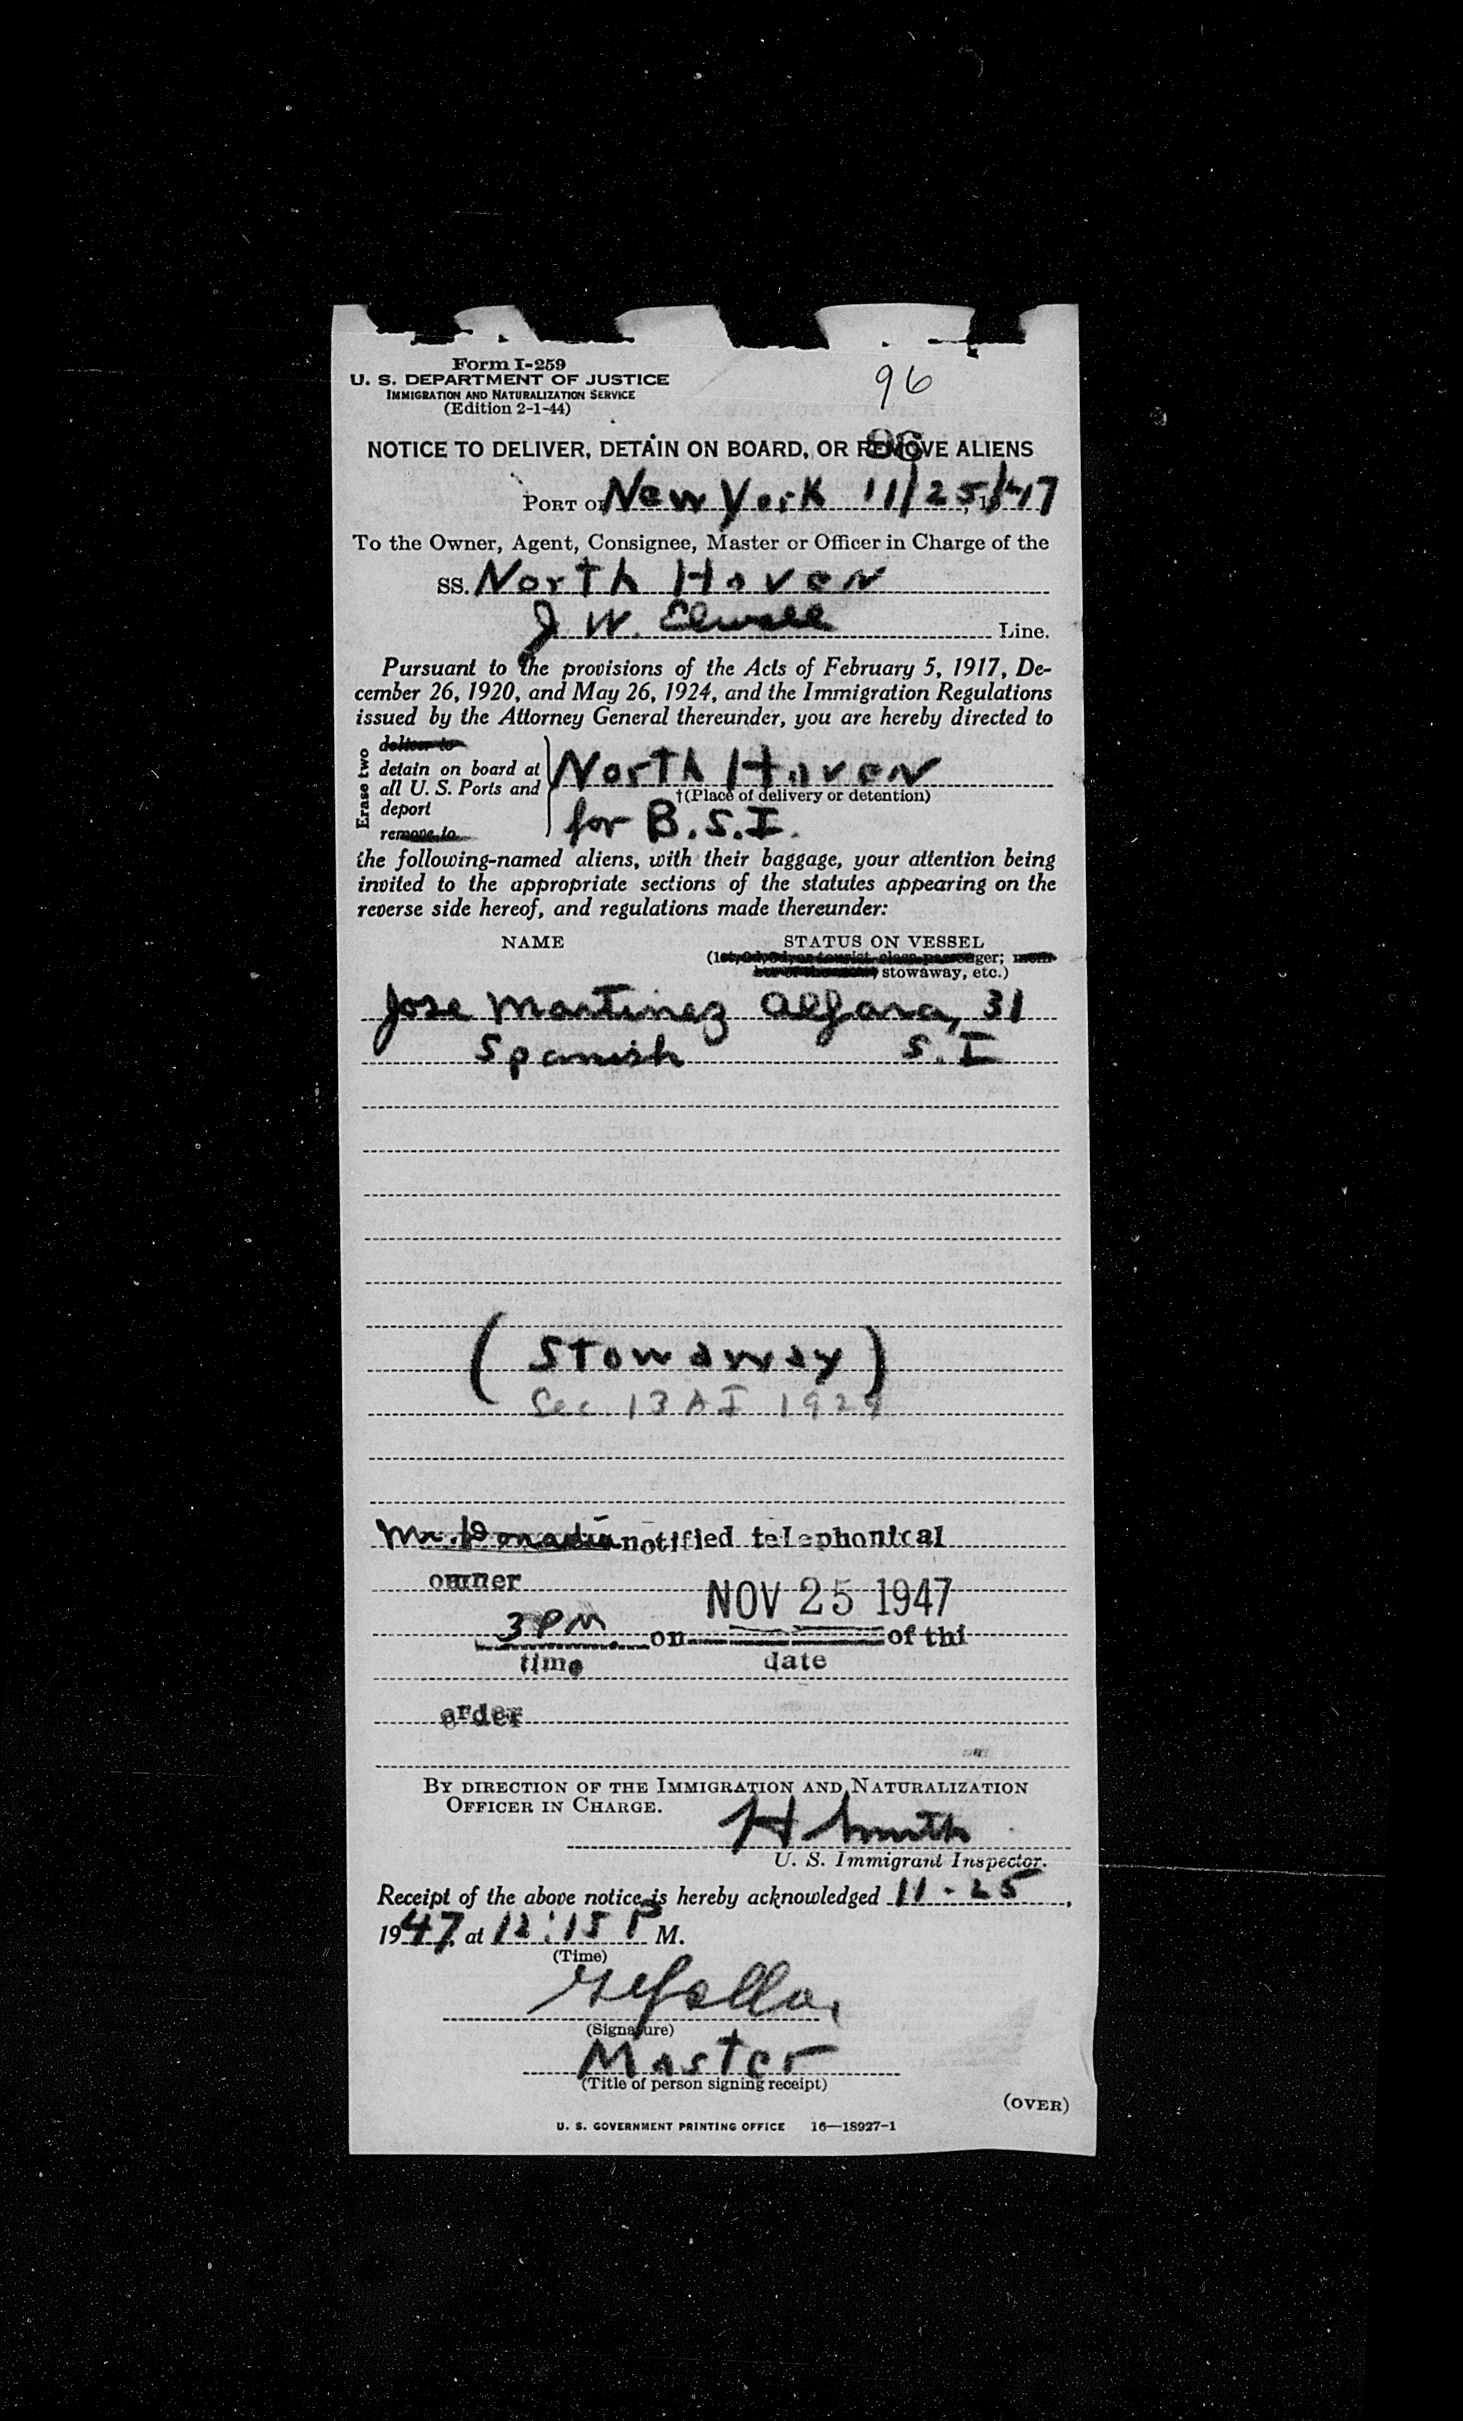 Form I-259
U. S. DEPARTMENT OF JUSTICE
IMMIGRATION AND NATURALIZATION SERVICE
(Edition 2-1-44)
96
96
NOTICE TO DELIVER, DETAIN ON BOARD, OR REMOVE ALIENS
PORT OF New York 11/25/47
To the Owner, Agent, Consignee, Master or Officer in Charge of the
SS. North Haven
J. W. Elwell Line.
Pursuant to the provisions of the Acts of February 5, 1917, De-
cember 26, 1920, and May 26, 1924, and the Immigration Regulations
issued by the Attorney General thereunder, you are hereby directed to
Erase two
deliver to
detain on board at
all U. S. Ports and
deport
remove to
North Haven
†(Place of delivery or detention)
for B.S.I.
the following-named aliens, with their baggage, your attention being
invited to the appropriate sections of the statutes appearing on the
reverse side hereof, and regulations made thereunder:
NAME STATUS ON VESSEL
(1st, 2d, 3d, or tourist class passenger; mem-
ber of the crew, stowaway, etc.)
Jose Martinez Alfara, 31
Spanish S.I
(Stowaway)
Sec. 13 A I 1924
Mr. notified telephonical
owner
3 PM on NOV 25 1947 of thi
time date
order
BY DIRECTION OF THE IMMIGRATION AND NATURALIZATION
OFFICER IN CHARGE.
H Smith
U. S. Immigrant Inspector.
Receipt of the above notice is hereby acknowledged 11-25,
1947, at 12:15 P M.
(Time)
(Signature)
Master
(Title of person signing receipt)
(OVER)
U. S. GOVERNMENT PRINTING OFFICE 16—18927-1